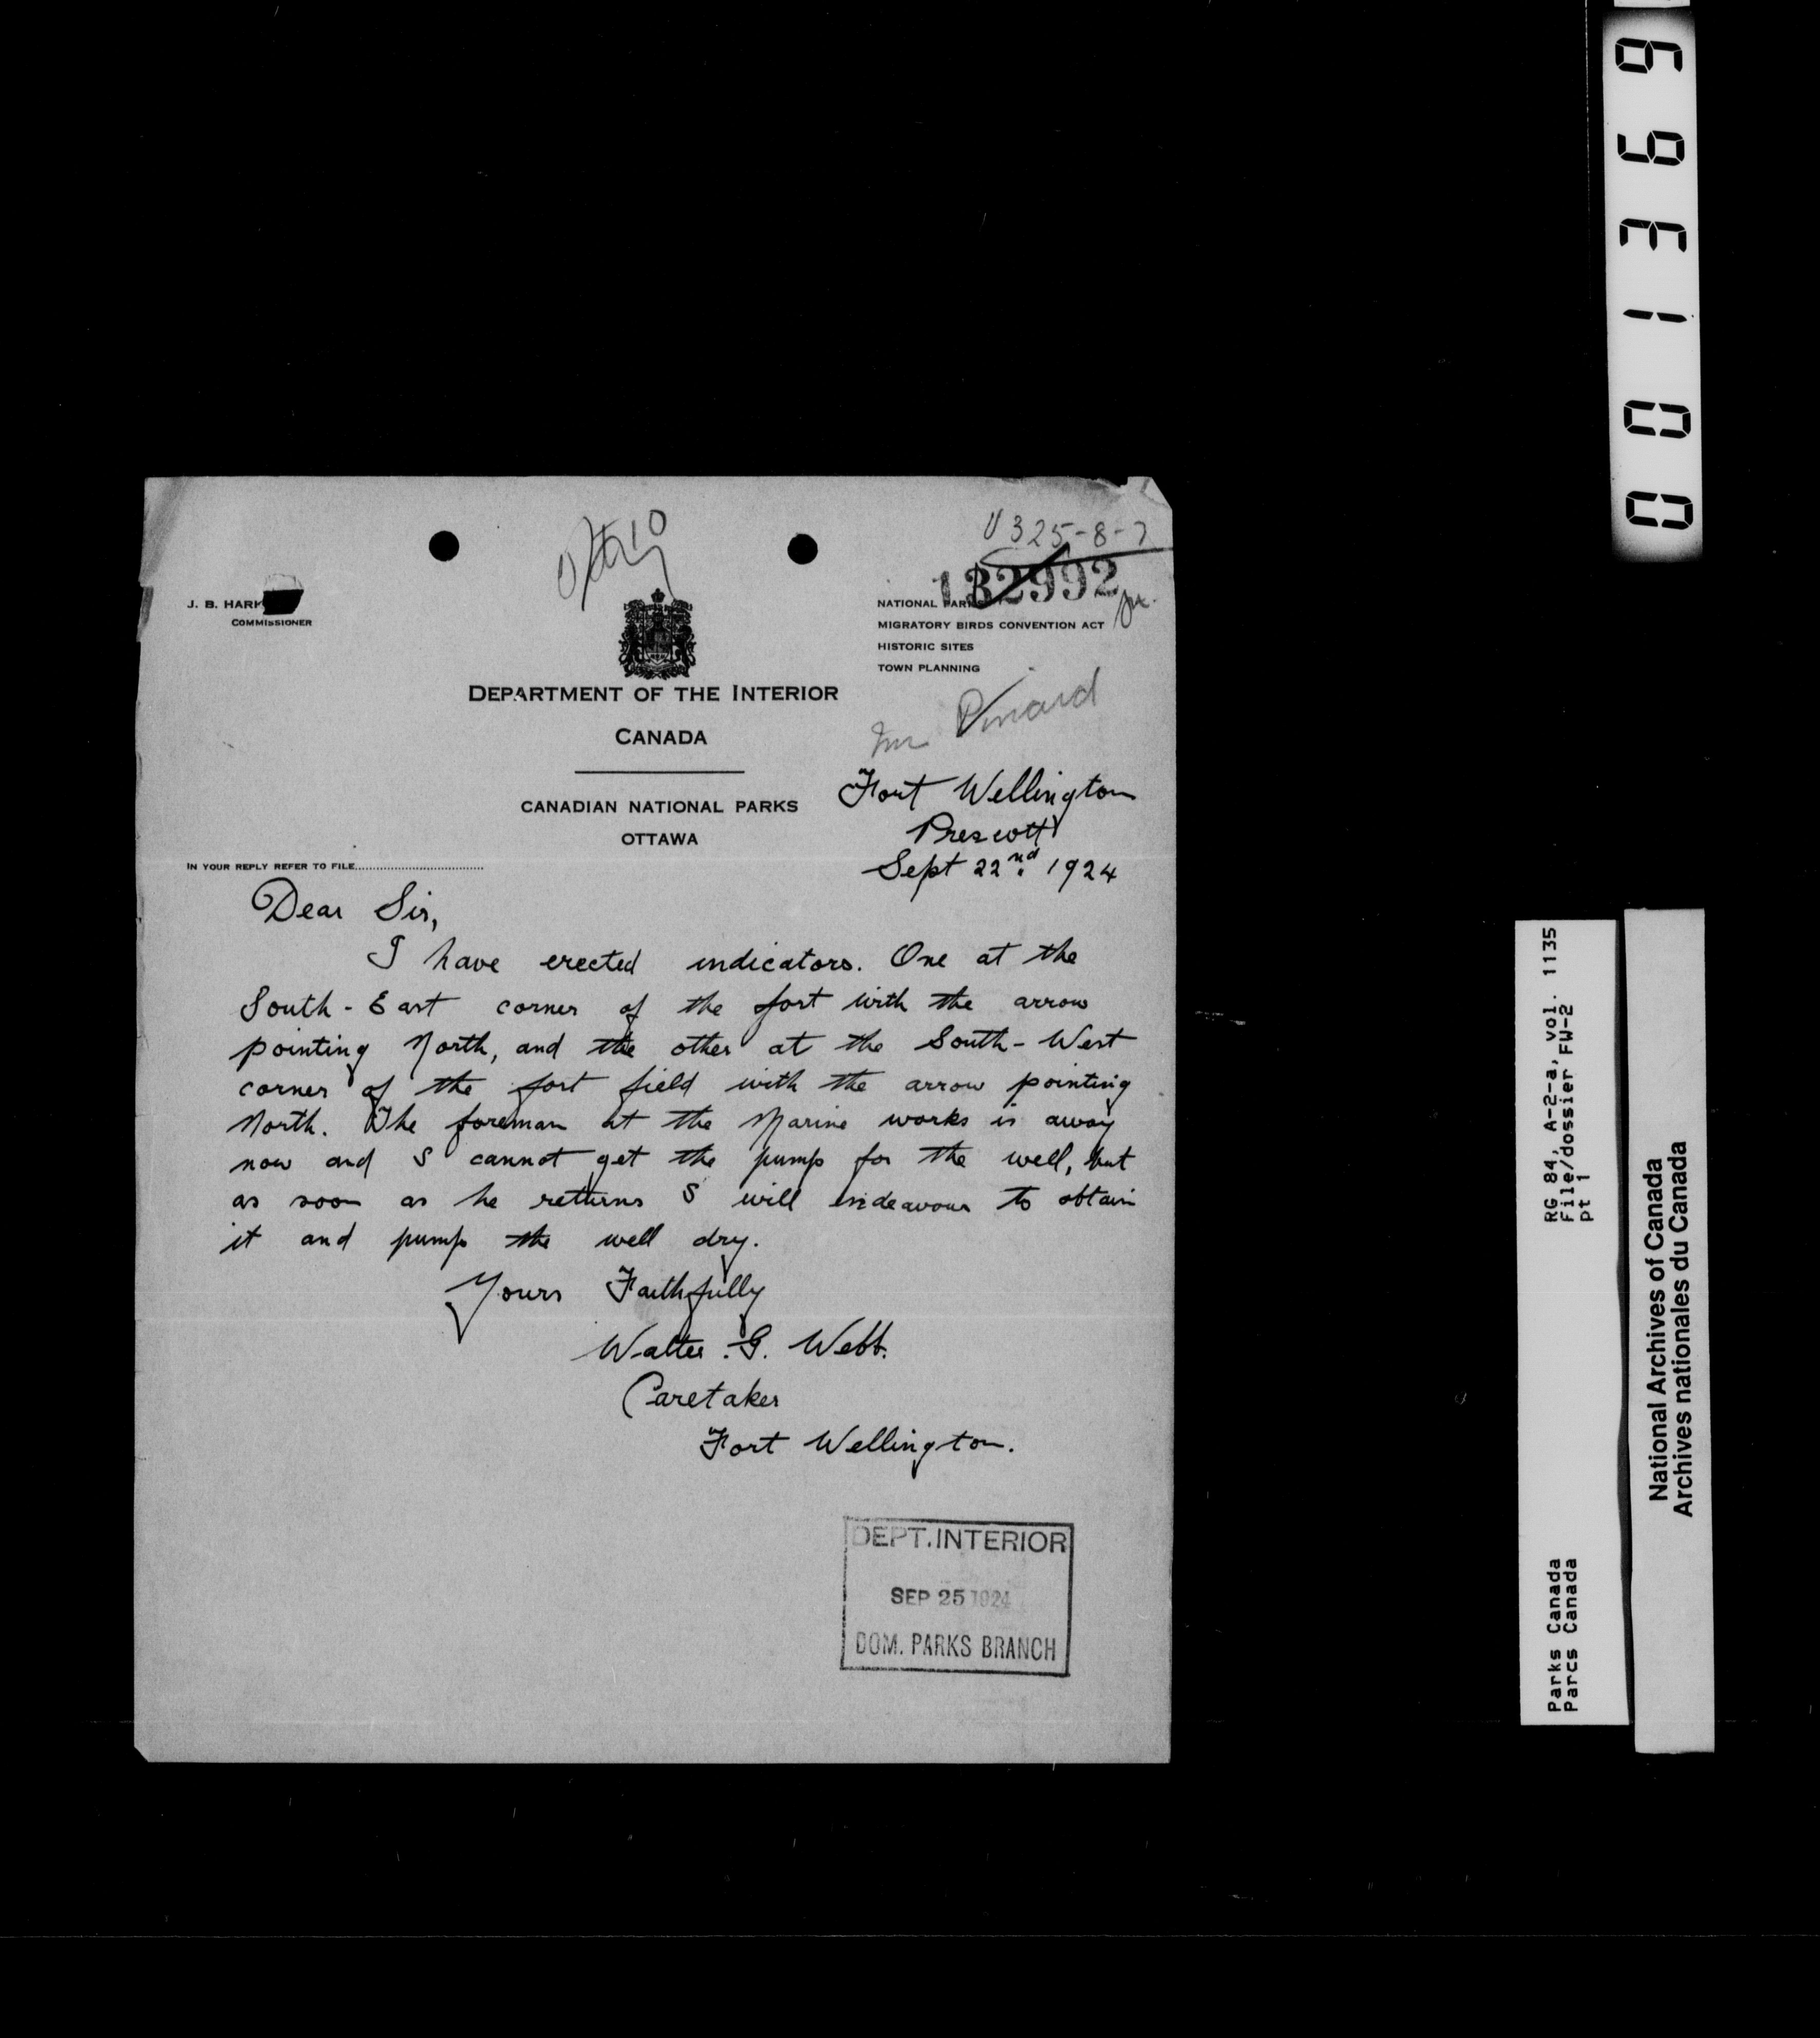 U325-8-7
132992
J. B. HARK
COMMISSIONER
NATIONAL PARKS
MIGRATORY BIRDS CONVENTION ACT
HISTORIC SITES
TOWN PLANNING
DEPARTMENT OF THE INTERIOR
CANADA
Mr Pinard
CANADIAN NATIONAL PARKS
OTTAWA
IN YOUR REPLY REFER TO FILE
Fort Wellington
Prescott
Sept 22nd. 1924
Dear Sir,
I have erected indicators. One at the
South-East corner of the fort with the arrow
pointing North, and the other at the South-West
corner of the fort field with the arrow pointing
North. The foreman at the Marine works is away
now and I cannot get the pump for the well, but
as soon as he returns I will endeavour to obtain
it and pump the well dry.
Yours Faithfully
Walter .G. Webb.
Caretaker
Fort Wellington.
DEPT. INTERIOR
SEP 25 1924
DOM. PARKS BRANCH
001369
RG 84, A-2-a, vol. 1135
File/dossier FW-2
pt 1
Parks Canada
Parcs Canada
National Archives of Canada
Archives nationales du Canada